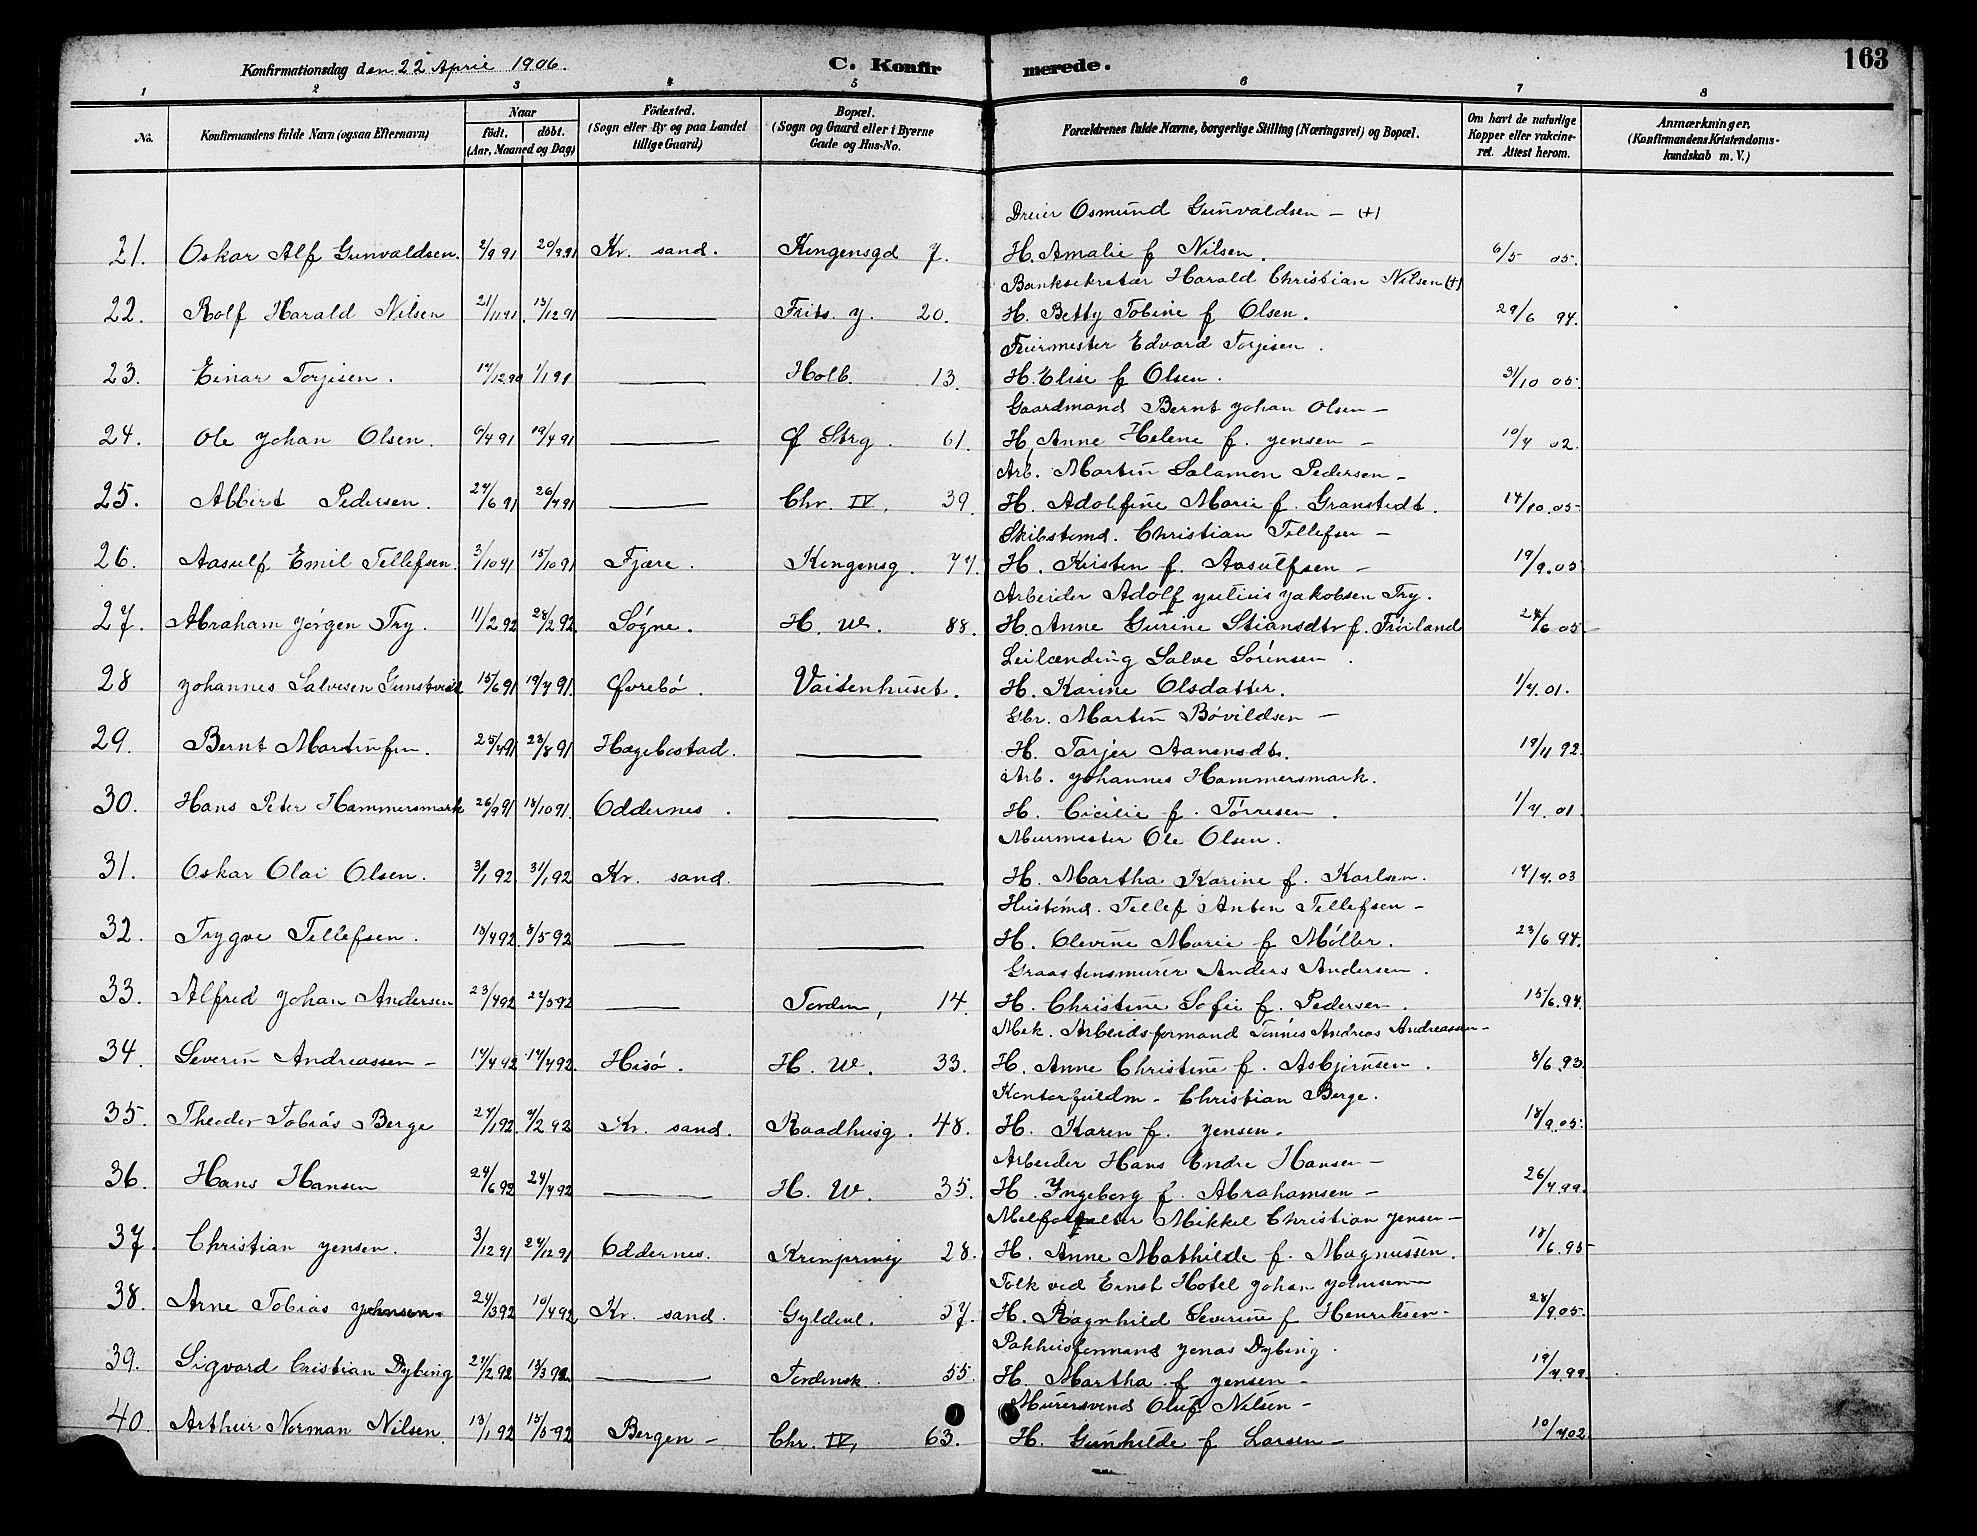 Konfirmationsdag den 22 April 1906.
C. Konfirmerede.
163
1 2 3 4 5 6 7 8
No. Konfirmandens fulde Navn (ogsaa Efternavn) Naar födt. döbt. (Aar, Maaned og Dag) Födested. (Sogn eller By og paa Landet tillige Gaard) Bopæl. (Sogn og Gaard eller i Byerne Gade og Hus-No. Forældrenes fulde Navne, borgerlige Stilling (Næringsvei) og Bopæl. Om havt de naturlige Kopper eller vakcineret. Attest herom. Anmærkninger. (Konfirmandens Kristendomskundskab m. V.)
Dreier Osmund Gunvaldsen – (+)
21. Oskar Alf Gunvaldsen. 2/9 91 20/9.91 Kr. sand. Kongensgd 7. H. Amalie f Nilsen. 6/5 05.
Banksekretær Harald Christian Nilsen (+)
22. Rolf Harald Nilsen 21/11 91. 13/12 91 — 20. H. Betty Tobine f Olsen. 29/6 94.
Feiermester Edvard Torjisen.
23. Einar Torjisen. 1/1 91 — Holb. 13. H. Elise f Olsen. 31/10 05.
Gaardmand Bernt Johan Olsen –
24. Ole Johan Olsen. 6/4 91 19/4 91 — Ø Strg. 61. H. Anne Helene f. Jensen – 10/4 02.
Arb. Martin Salamon Pedersen –
25. Albert Pedersen. 24/6 91 26/7 91 — Chr. IV. 39. H. Adolfine Marie f. Granstedt. 14/10.05
Skibstømd. Christian Tellefsen –
26. Aasulf Emil Tellefsen. 3/10 91 15/10 91 Fjære. Kongensg. 77. H. Kirsten f. Aasulfsen – 19/9.05
Arbeider Adolf Julius Jakobsen Try.
27. Abraham Jörgen Try. 11/2 92 28/2 92. Søgne. H. W. 88. H. Anne Gurine Stiansdtr f. Fröiland 6.05.
Leilænding Salve Sörensen.
28 Johannes Salvesen 15/6 91 19/7 91. Øvrebø. Vaisenhuset. H. Karine Olsdatter. 1/7.01.
Gbr. Martin Bövildsen –
29. Bernt Martinsen. 25/4 91 23/8 91 Hægebostad. — H. Tarjer Aanensdt. 19/11 92.
Arb. Johannes Hammersmark.
30. Hans Peter Hammersmark 26/9 91 18/10 91. Oddernes. — H. Cicilie f. Törresen. 1/7.01.
Murmester Ole Olsen.
31. Oskar Olai Olsen. 3/1 92 31/1 92 Kr. sand. — H. Martha Karine f. Karlsen. 14/7.03
Hustømd. Tellef Anton Tellefsen –
32. Trygve Tellefsen. 13/4 92 8/5 92 — — H. Olevine Marie f Möller. 23/6 94.
Graastensmurer Anders Andersen.
33. Alfred Johan Andersen 23/4 92 22/5 92 — Tordin, 14. H. Christine Sofie f. Pedersen. 15/6.94.
Mek. Arbeidsformand Tönnes Andreas Andreassen –
34. Severin Andreassen – 14/4 92 17/4 92. Hisø. H. W. 33. H. Anne Christine f. Asbjörnsen. 8/6.93
Christian Berge.
35. Theodor Tobias Berge 27/1 92. 7/2 92 Kr. sand. Raadhusg. 48. H. Karen f. Jensen. 18/9.05.
Arbeider Hans Endre Hansen –
36. Hans Hansen 24/6 92 24/7 92 — H. W. 35. H. Ingeborg f. Abrahamsen – 26/7.99.
Mikkel Christian Jensen –
37. Christian Jensen. 3/12 91 27/12 91 Oddernes. 28. H. Anne Mathilde f. Magnussen. 18/6.95
Tolk ved Ernst Hotel Johan Johnsen
38. Arne Tobias Johnsen. 24/3 92 10/4 92 Kr. sand. Gyldenl. 57. H. Ragnhild Severine f Henriksen – 28/9.05.
Pakhusformand Jonas Dybing.
39. Sigvard Cristian Dybing 27/2 92 13/3 92. — Tordensk. 55. H. Martha f Jensen – 19/7.99.
Murersvend Oluf Nilsen –
40. Arthur Norman Nilsen. 13/1 92 15/5 92 Bergen – Chr. IV, 63. H. Gunhilde f Larsen – 10/7 02.